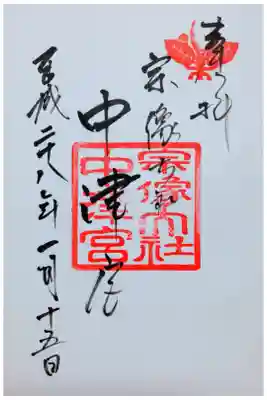 奉拝
宗像大社
中津宮
平成二十八年一月十五日
宗像大社
中津宮